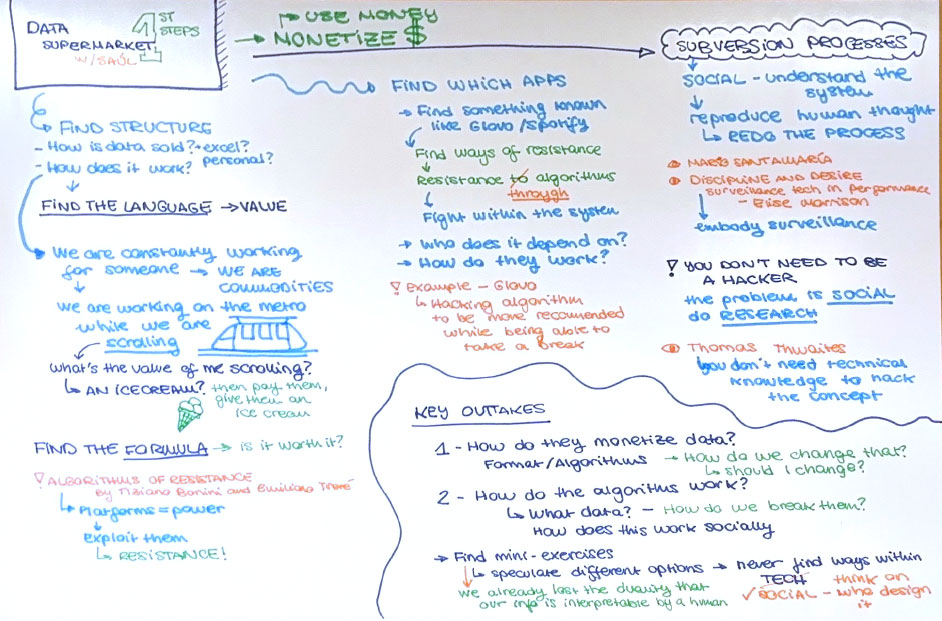 DATA
SUPERMARKET
W/SAÚL
1
ST
STEPS
USE MONEY
MONETIZE $
FIND STRUCTURE
- How is data sold? → excel?
- How does it work? personal?
FIND THE LANGUAGE → VALUE
We are constantly working
for someone → WE ARE
COMMODITIES
we are working on the metro
while we are
scrolling
what's the value of me scrolling?
AN ICECREAM? then pay them,
give them an
ice cream
FIND THE FORMULA → is it worth it?
! ALGORITHMS OF RESISTANCE
by Tiziano Bonini and Emiliano Treré
Platforms = power
Exploit them
RESISTANCE!
FIND WHICH APPS
Find something known
like Glovo/Spotify
Find ways of resistance
Resistance to algorithms
through
Fight within the system
→ Who does it depend on?
→ How do they work?
! Example - Glovo
Hacking algorithm
to be more recomended
while being able to
take a break
SUBVERSION PROCESSES
SOCIAL - understand the
system
reproduce human thought
REDO THE PROCESS
MARIO SANTAMARÍA
DISCIPLINE AND DESIRE
surveillance tech in performance
- Elise Morrison
embody surveillance
! YOU DON'T NEED TO BE
A HACKER
the problem is SOCIAL
do RESEARCH
Thomas Thwaites
you don't need technical
knowledge to hack
the concept
KEY OUTTAKES
1 - How do they monetize data?
Format/Algorithms → How do we change that?
should I change?
2 - How do the algorithms work?
What data? - How do we break them?
How does this work socially
→ Find mini-exercises
speculate different options → never find ways within
TECH think on
✓ SOCIAL - who design
it
we already lost the duality that
our info is interpretable by a human